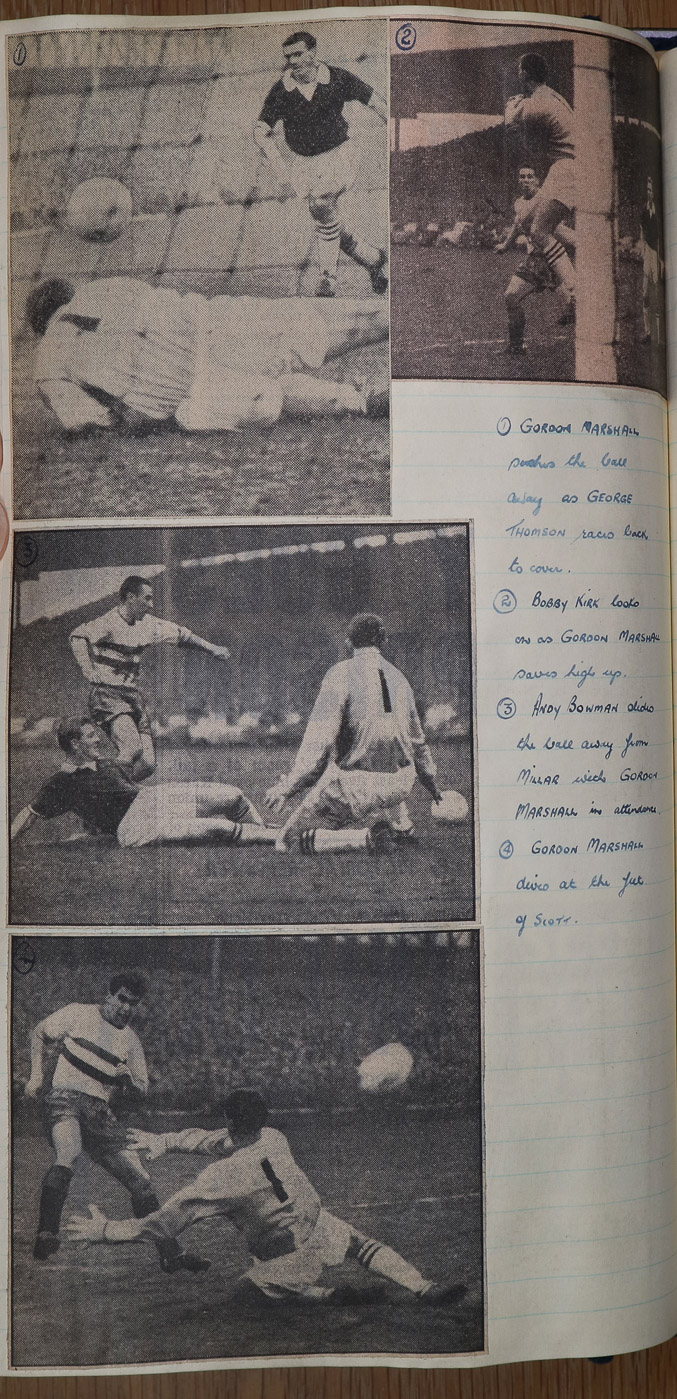 ①
②
① GORDON MARSHALL
pushes the ball
away as GEORGE
THOMSON races back
to cover.
② BOBBY KIRK looks
on as GORDON MARSHALL
saves high up.
③
③ ANDY BOWMAN slides
the ball away from
MILLAR with GORDON
MARSHALL in attendance.
④ GORDON MARSHALL
dives at the feet
of SCOTT.
1
④
1